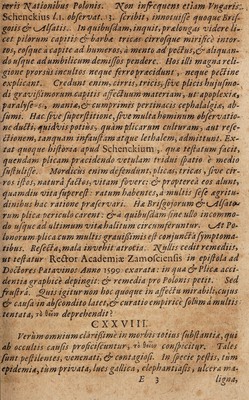 teris Nationibus Polonis. Non infrequens etiam Ungaris.
Schenckius l. 1. observat. 13. scribit, innotuisse quoque Bris-
gois & Alsatis. In quibusdam, inquit, prælongas videre li-
cet pilorum capitis & barbæ tricas cirrosque mirificè intor-
tos, eosque à capite ad humeros, à mento ad pectus, & aliquan-
do usque ad umbilicum demissos pendere. Hos illi magna reli-
gione prorsus incultos neque ferro præcidunt, neque pectine
explicant. Credunt enim, cirris, tricis, sive plicis hujusmo-
di gravissimorum capitis affectuum materiam, ut apoplexiæ,
paralyse-s, maniæ, & cumprimis pertinacis cephalalgiæ, abs-
umi. Hac sive superstitione, sive multa hominum observatio-
ne ducti, quidvis potius, quam plicarum culturam, aut reſe-
ctionem, tanquam infaustam atque lethalem, admittunt. Ex-
tat quoque historia apud Schenckium, qua testatum facit,
quendam plicam præcidendo vetulam tridui spatio è medio
sustulisse. Mordicus enim defendunt, plicas, tricas, sive cir-
ros istos, naturâ factos, vitam fovere; & propterea eo alunt,
quamdiu vita superest: ratum habentes, à multis sese ægritu-
dinibus hac ratione præservari. Ha Brisgojorum & Alsato-
rum plica periculo caret: & à quibusdam sine ullo incommo-
do usque ad ultimum vitæ halitum circumferuntur. At Po-
lonorum plica cum multis gravissimis est conjuncta symptoma-
tibus. Resecta, mala invehit atrocia. Nullis cedit remediis,
ut testatur Rector Academiæ Zamosciensis in epistola ad
Doctores Patavinos Anno 1599. exarata: in qua & Plicæ acci-
dentia graphicè depingit: & remedia pro Polonis petit. Sed
frustrà. Quis igitur non hoc quoque in affectu mirabili, cujus
& causa in abscondito latet, & curatio empiricè solùm à multis
tentata, deprehendit?
CXXVIII.
Verùm omnium clarissimè in morbis totius substantiæ, qui
ab occultis causis proficiscuntur, conspicitur. Tales
sunt pestilentes, venenati, & contagiosi. In specie pestis, tùm
epidemia, tùm privata, lues gallica, elephantiasis, ulcera ma-
E 3
ligna,